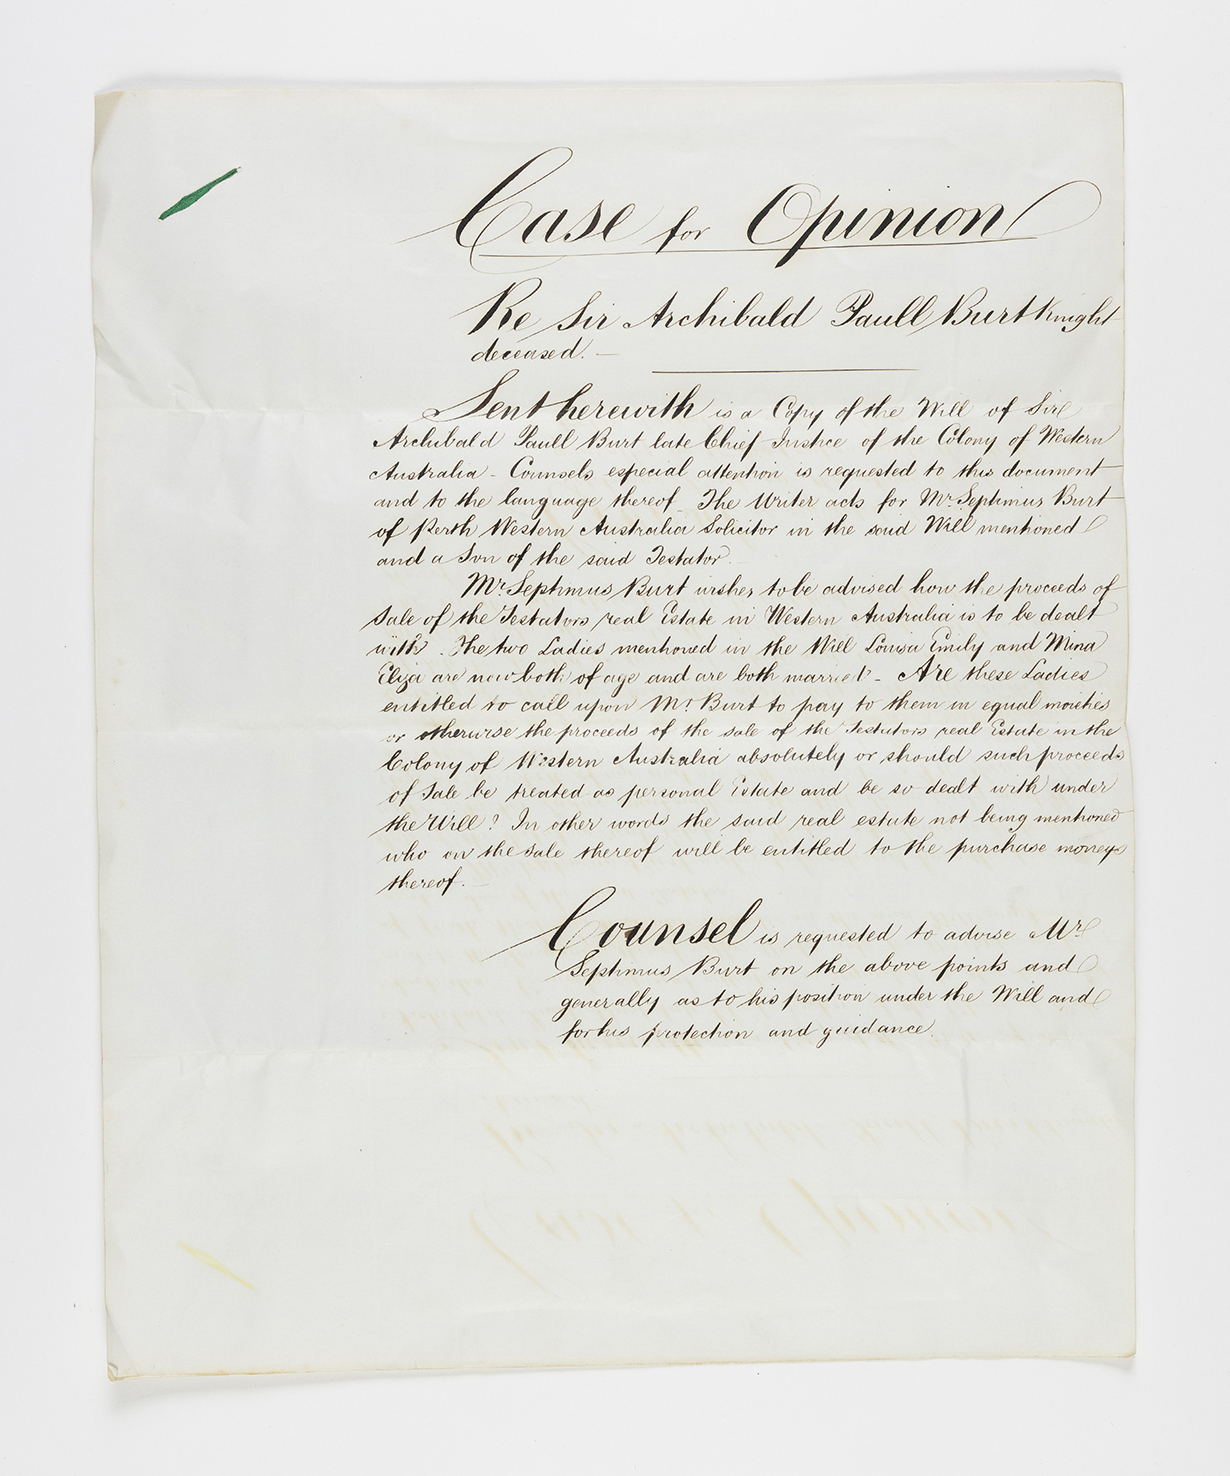 Case for Opinion
Re Sir Archibald Paull Burt Knight
deceased. —
Sent herewith is a Copy of the Will of Sir
Archibald Paull Burt late Chief Justice of the Colony of Western
Australia – Counsels especial attention is requested to this document
and to the language thereof – The Writer acts for Mr. Septimus Burt
of Perth Western Australia Solicitor in the said Will mentioned
and a Son of the said Testator. –
Mr. Septimus Burt wishes to be advised how the proceeds of
Sale of the Testators real Estate in Western Australia is to be dealt
with. The two Ladies mentioned in the Will Louisa Emily and Mina
Eliza are now both of age and are both married – Are these Ladies
entitled to call upon Mr. Burt to pay to them in equal moieties
or otherwise the proceeds of the sale of the Testators real Estate in the
Colony of Western Australia absolutely or should such proceeds
of Sale be treated as personal Estate and be so dealt with under
the Will? In other words the said real estate not being mentioned
who on the Sale thereof will be entitled to the purchase moneys
thereof. –
Counsel is requested to advise Mr.
Septimus Burt on the above points and
generally as to his position under the Will and
for his protection and guidance.